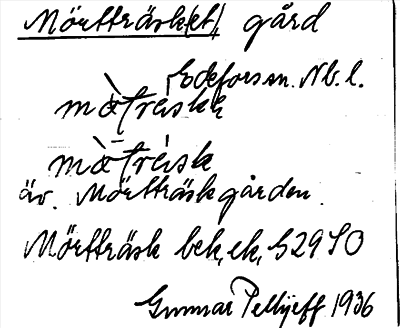 Mörtträsk(et), gård
Edefors sn. Nb. l.
mö̀t̄rèskk
mö̀t̄rèsk
äv. Mörtträskgården.
Mörtträsk bek, ek, S29SO
Gunnar Pellijeff 1936